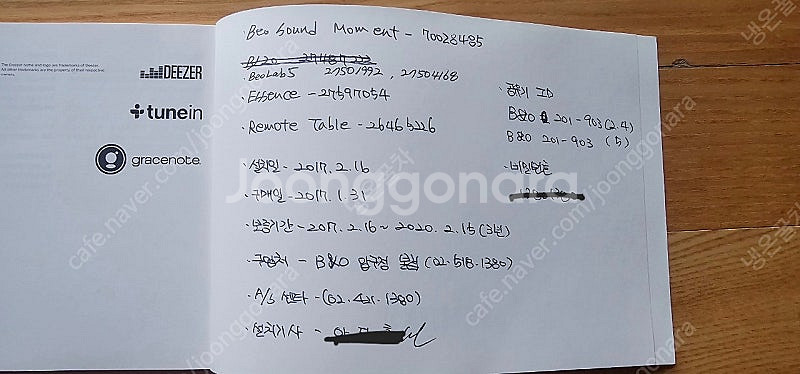 The Deezer name and logo are trademarks of Deezer.
All other trademarks are the property of their respective owners.
DEEZER
tunein
gracenote.
· Beo Sound Moment - 70028485
BeoLab5 27501992, 27504168
· Essence - 27597054
· Remote Table - 26465226
· 설치일 - 2017. 2. 16
· 구매일 - 2017. 1. 31
· 보증기간 - 2017. 2. 16 ~ 2020. 2. 15 (3년)
· 구입처 - B&O 압구정 (02. 518. 1380)
· A/S 센타 - (02. 421. 1380)
· 설치기사 -
· 공유기 ID
B&O 201-903 (2.4)
B&O 201-903 (5)
· 비밀번호
Joonggonara
cafe.naver.com/joonggonara